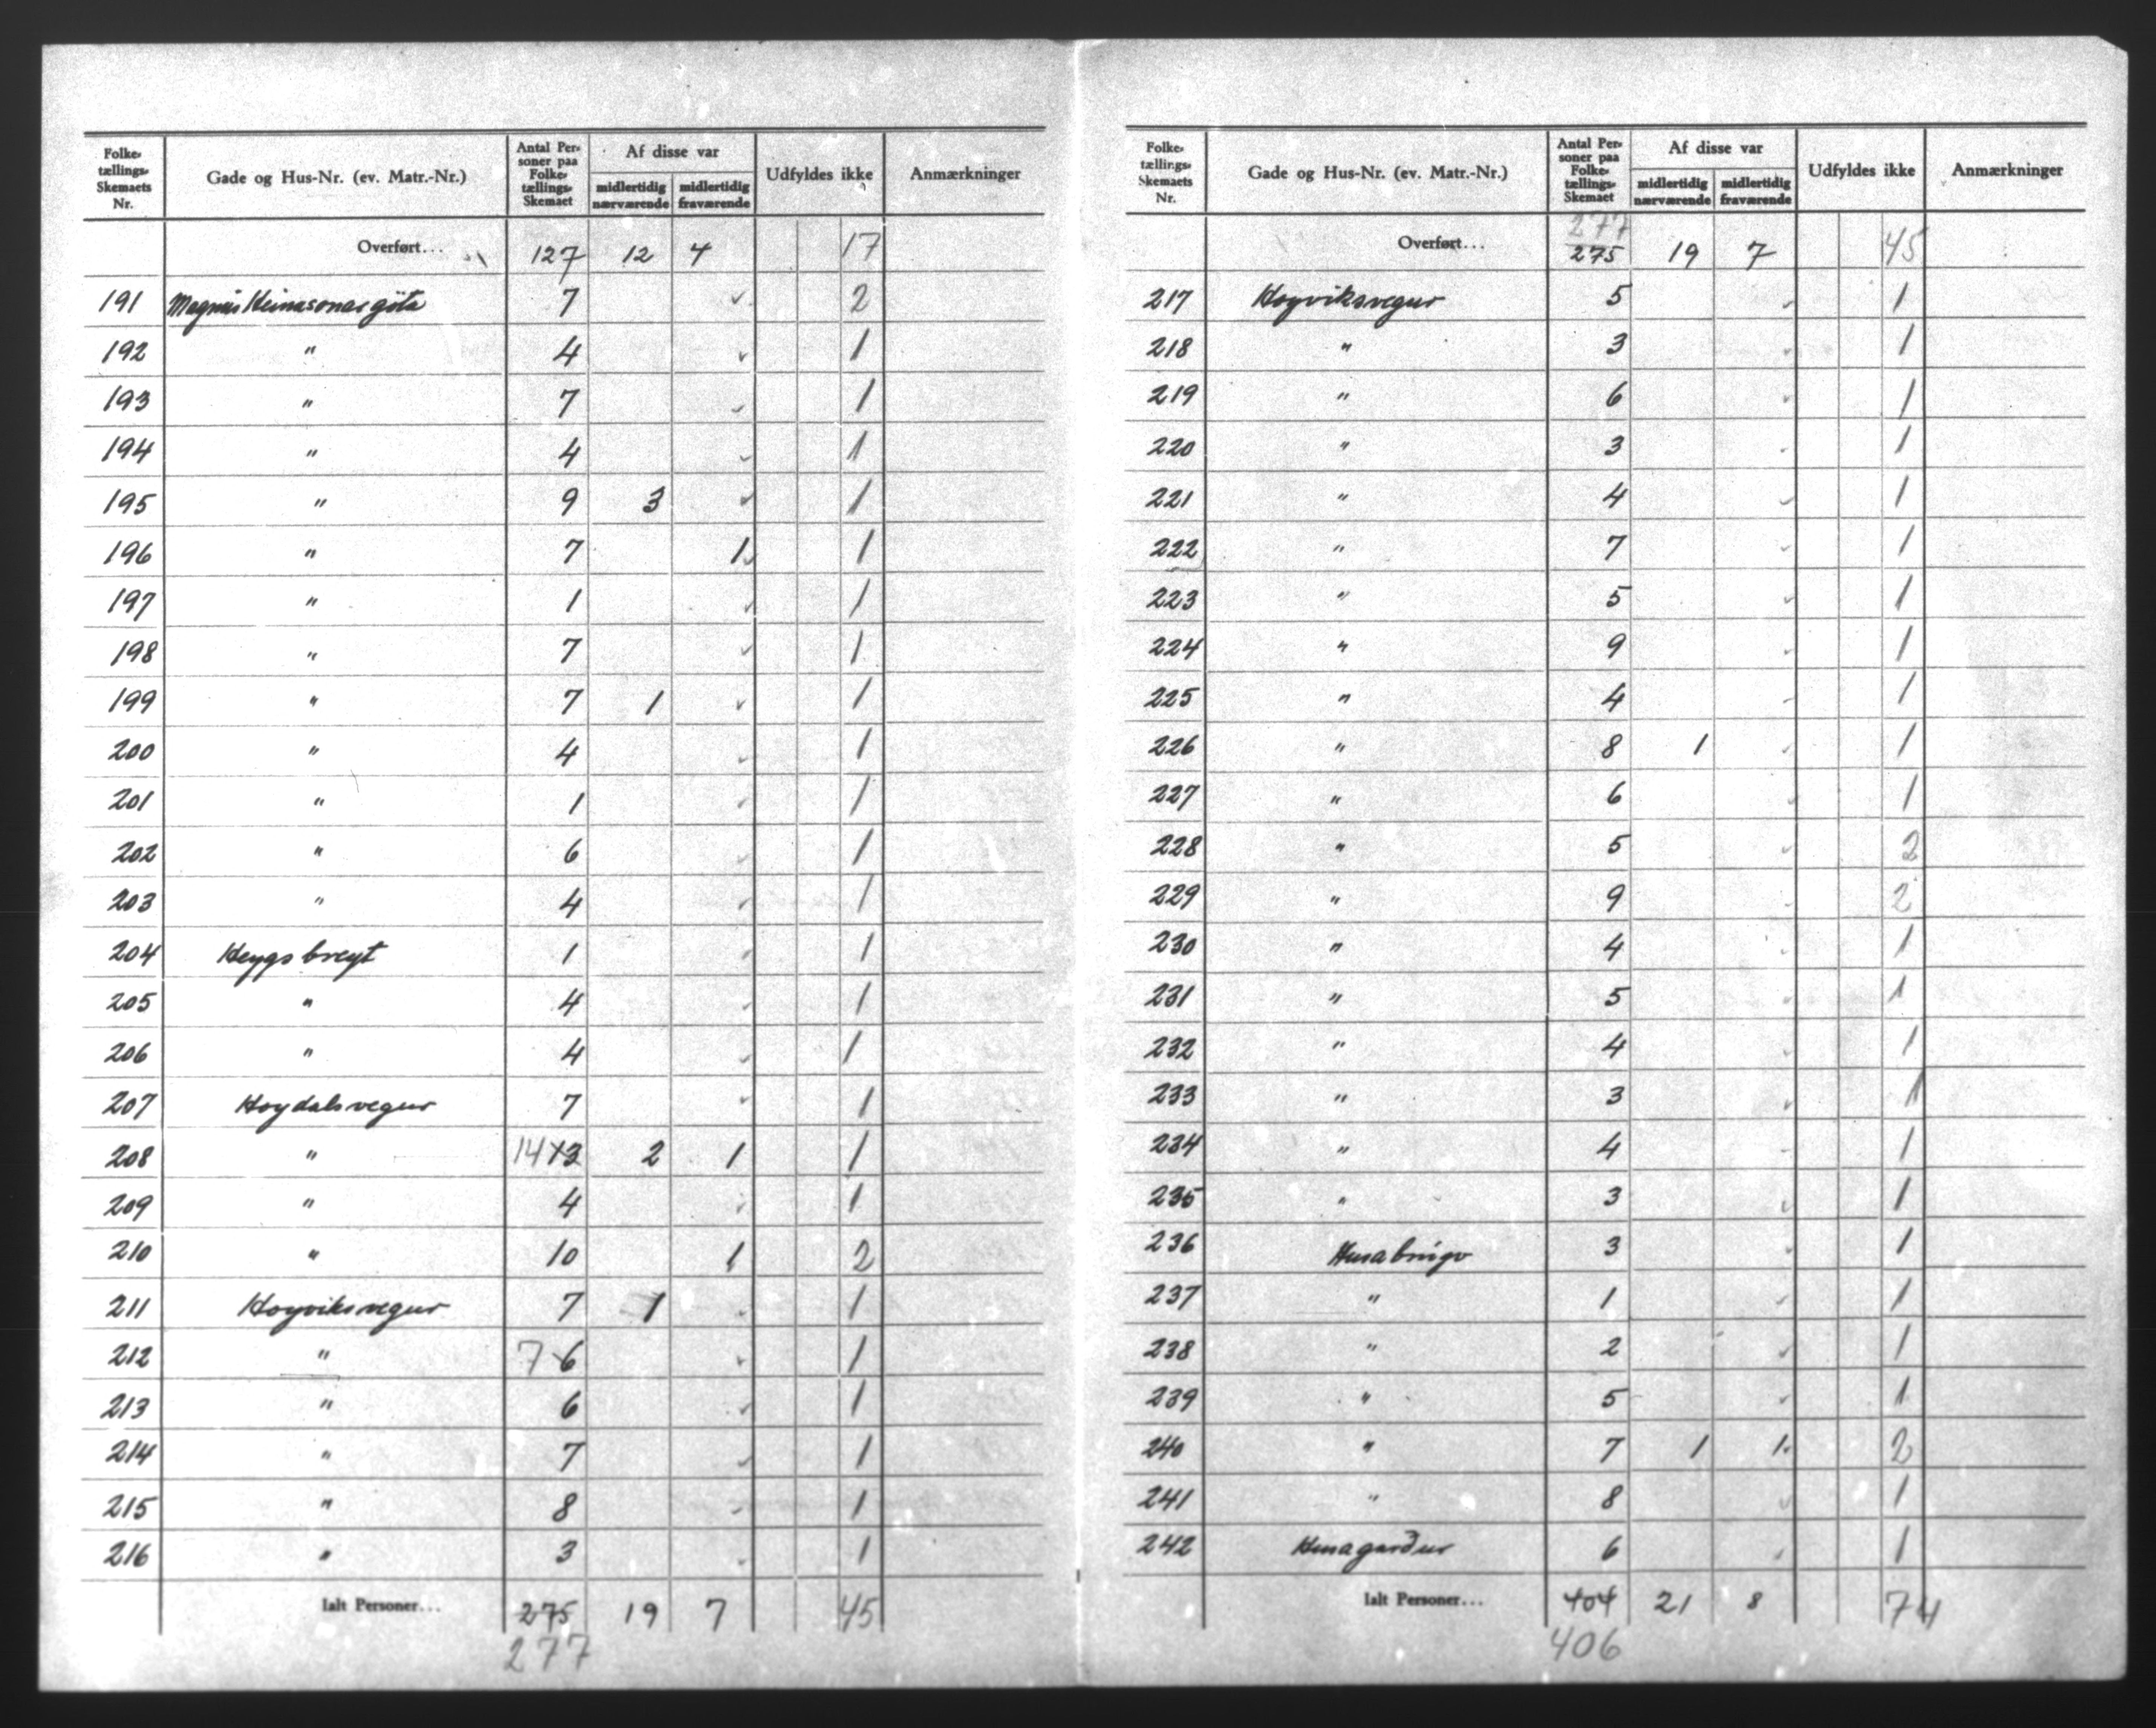 Folketællings-Skemaets Nr. | Gade og Hus-Nr. (ev. Matr.-Nr.) | Antal Personer paa Folketællings-Skemaet | Af disse var midlertidig nærværende | midlertidig fraværende | Udfyldes ikke | Anmærkninger
Overført... 127 12 4 17
191 Magnus Heinasonar göta 7 2
192 " 4 1
193 " 7 1
194 " 4 1
195 " 9 3 1
196 " 7 1 1
197 " 1 1
198 " 7 1
199 " 7 1 1
200 " 4 1
201 " 1 1
202 " 6 1
203 " 4 1
204 Heygsbreyt 1 1
205 " 4 1
206 " 4 1
207 Hoydalsvegur 7 1
208 " 14 13 2 1 1
209 " 4 1
210 " 10 1 2
211 Hoyviksvegur 7 1 1
212 " 7 6 1
213 " 6 1
214 " 7 1
215 " 8 1
216 " 3 1
Ialt Personer... 275 19 7 45
277
Folketællings-Skemaets Nr. | Gade og Hus-Nr. (ev. Matr.-Nr.) | Antal Personer paa Folketællings-Skemaet | Af disse var midlertidig nærværende | midlertidig fraværende | Udfyldes ikke | Anmærkninger
277
Overført... 275 19 7 45
217 Hoyviksvegur 5 1
218 " 3 1
219 " 6 1
220 " 3 1
221 " 4 1
222 " 7 1
223 " 5 1
224 " 9 1
225 " 4 1
226 " 8 1 1
227 " 6 1
228 " 5 2
229 " 9 2
230 " 4 1
231 " 5 1
232 " 4 1
233 " 3 1
234 " 4 1
235 " 3 1
236 Husabrúgv 3 1
237 " 1 1
238 " 2 1
239 " 5 1
240 " 7 1 1 2
241 " 8 1
242 Husagarður 6 1
Ialt Personer... 404 21 8 74
406